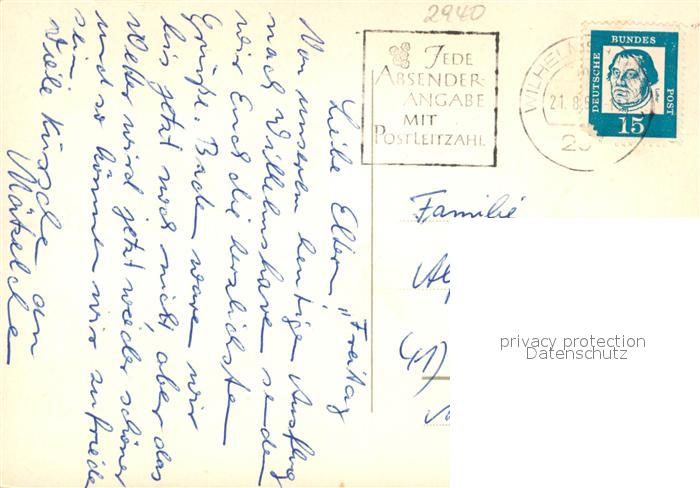 2940
JEDE
ABSENDER-
ANGABE
MIT
POSTLEITZAHL
WILHELM
21.8.6
29
DEUTSCHE
BUNDES
POST
15
Freitag
Liebe Eltern,
Von unserem heutigen Ausflug
nach Wilhelmshaven senden
wir Euch die herzlichsten
Grüße. Baden waren wir
bis jetzt noch nicht, aber das
Wetter wird jetzt wieder schöner
und so können wir zufrieden
sein
Viele Küssche an
Familie
privacy protection
Datenschutz